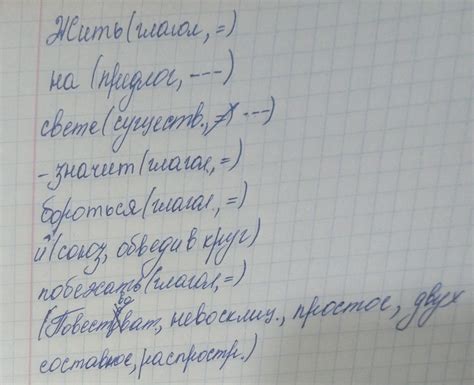 Жить (глагол, =)
на (предлог, ---)
свете (существ., ---)
- значит (глагол, =)
бороться (глагол, =)
и (союз, обведи в круг)
побежать (глагол, =)
(Повествоват, невосклиц., простое, двух
составное, распростр.)